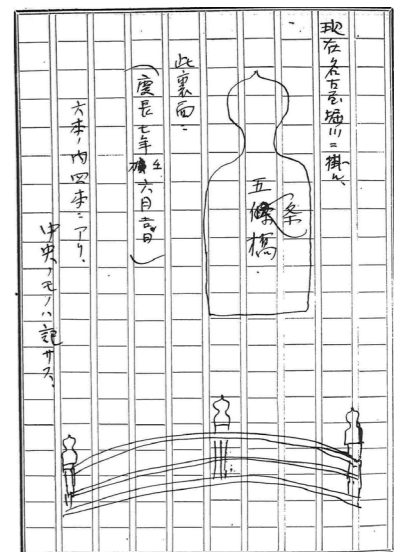 現在名古屋堀川ニ掛ル、
五條橋.
条
此裏面ニ
(慶長七年壬六月吉日)
六本ノ内四本ニアリ.
中央ノモノハ記サス.